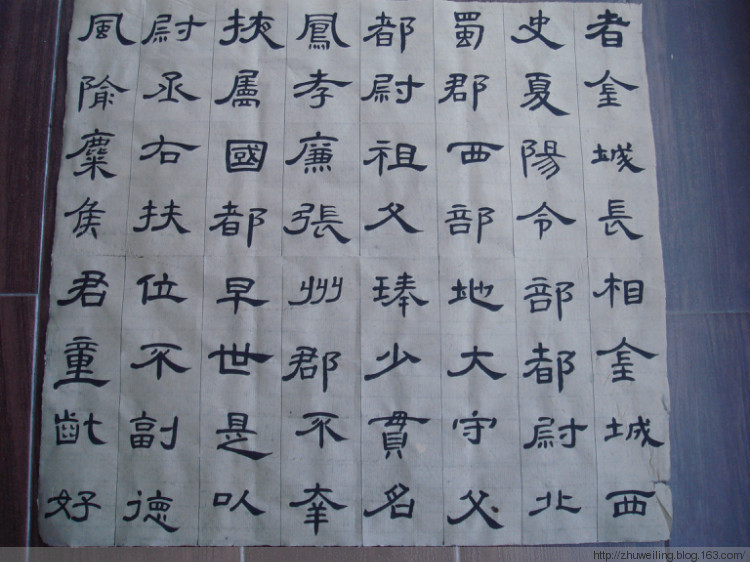 者金城長
史夏陽令
蜀郡西部
都尉祖父
鳳孝廉張
掖屬國都
尉丞右扶
風隃麋侯
相金城西
部都尉北
地大守父
琫少貫名
州郡不幸
早世是以
位不副德
君童齔好
http://zhuweiling.blog.163.com/